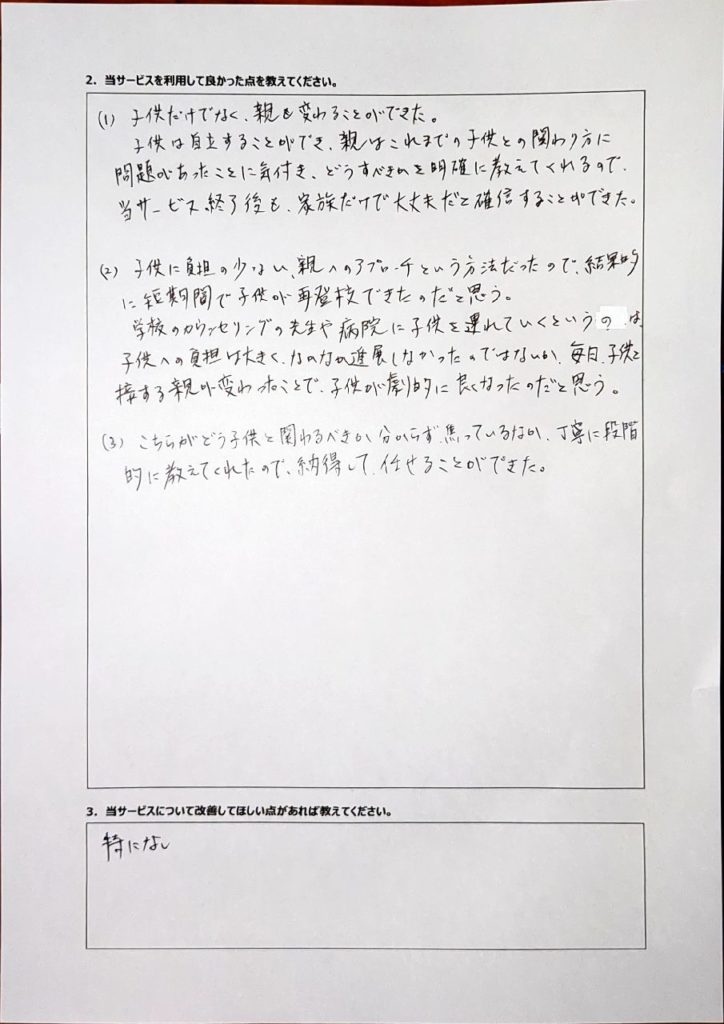 2. 当サービスを利用して良かった点を教えてください。
(1) 子供だけでなく、親も変わることができた。
子供は自立することができ、親はこれまでの子供との関わり方に
問題があったことに気付き、どうすべきかを明確に教えてくれるので、
当サービス終了後も、家族だけで大丈夫だと確信することができた。
(2) 子供に負担の少ない、親へのアプローチという方法だったので、結果的
に短期間で子供が再登校できたのだと思う。
学校のカウンセリングの先生や病院に子供を連れていくというのは、
子供への負担は大きく、なかなか進展しなかったのではないか。毎日、子供と
接する親が変わったことで、子供が劇的に良くなったのだと思う。
(3) こちらがどう子供と関わるべきか分からず焦っているなか、丁寧に段階
的に教えてくれたので、納得して、任せることができた。
3. 当サービスについて改善してほしい点があれば教えてください。
特になし